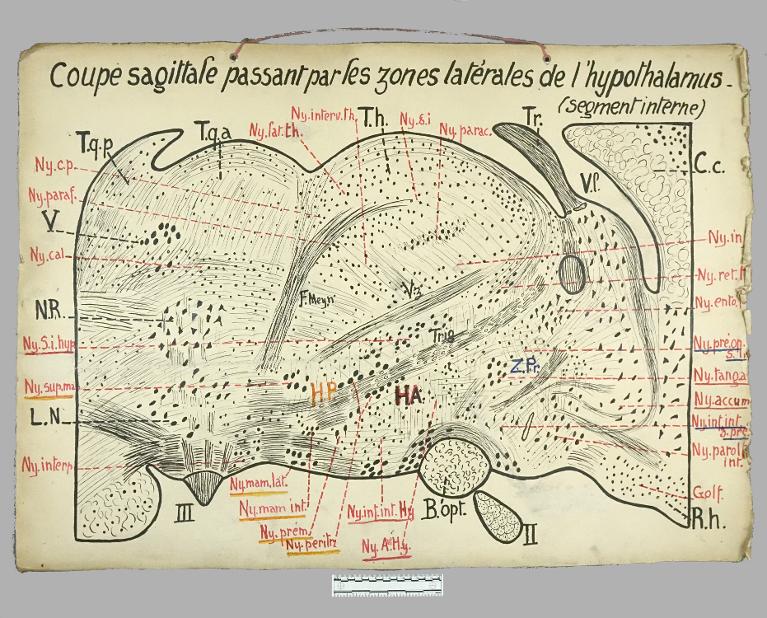 Coupe sagittale passant par les zones latérales de l'hypothalamus_
(segment interne)
T.q.p
T.q.a
Ny.lat.th.
Ny.interv.th.
T.h.
Ny.s.i
Ny.parac.
Tr.
C.c.
V.l.
Ny.c.p.
Ny.paraf.
V
Ny.cal
N.R.
Ny.S.i.hyp
Ny.sup.ma
L.N
Ny.interp
III
F.Meyn
Trig
H.P.
H.A.
Z.Pr.
Ny.in
Ny.ret.
Ny.ento
Ny.pré.op.
Ny.tanga
Ny.accum
Ny.int.int.
s.pré.
Ny.parol
int.
Golf.
R.h.
Ny.mam.lat.
Ny.mam int.
Ny.prem.
Ny.perifr
Ny.int.int.Hy
Ny.A.Hy.
B.opt.
II